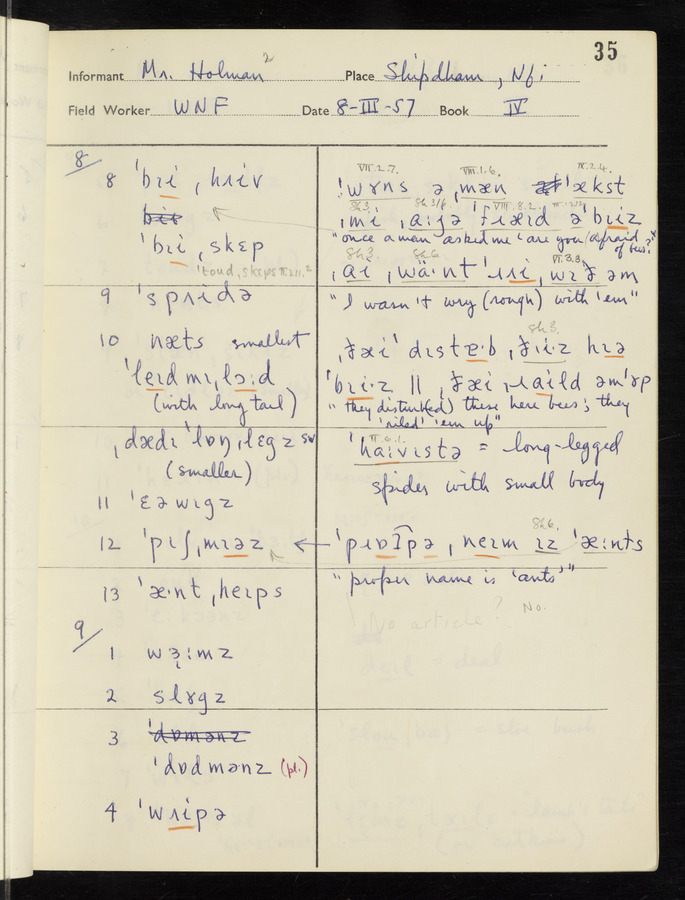 35
Informant Mr. Holman² Place Shipdham, Nf;
Field Worker WNF Date 8-III-57 Book IV
8
8 ˈbɪi ˌhɹɪv
ˈbɪi ˌskɛp
9 ˈspɹɪdə
10 næts smallest
ˈleɪdmɪˌlɔːd
(with long tail)
ˌdædɪ ˈlɒŋˌlɛgz
(smaller)
11 ˈɛəwɪgz
12 ˈpɪʃˌmɪəz
13 ˈæ·nt ˌheɪps
9
1 wɜːmz
2 slɤgz
3 ˈdɒdmənz (pl.)
4 ˈwɹipə
VII.2.7. VIII.1.6. IX.2.4.
ˈwɤns ə ˌmæn ˈækst
Sh3. Sh.3/6. VIII.8.2.
ˌmi ˌɑːjə ˈfɹæɪd ə ˈbɪiz
"once a man asked me 'are you afraid of bees?'"
Sh3. Sh6.
"I wasn't wry (rough) with 'em"
Sh3.
ˌðæi dɪstɐ·b ˌðɪ·z hɪə
ˈbɪi·z || ˌðæi ˌɹaild əm ˈɤp
"they disturb(ed) these here bees; they
'riled' 'em up"
ˈhɑːvɪstə = long-legged
spider with small body
Sh.6.
← ˈpɹɒpə ˌneɪm ɪz ˈæːnts
"proper name is 'ants'"
No article? No.